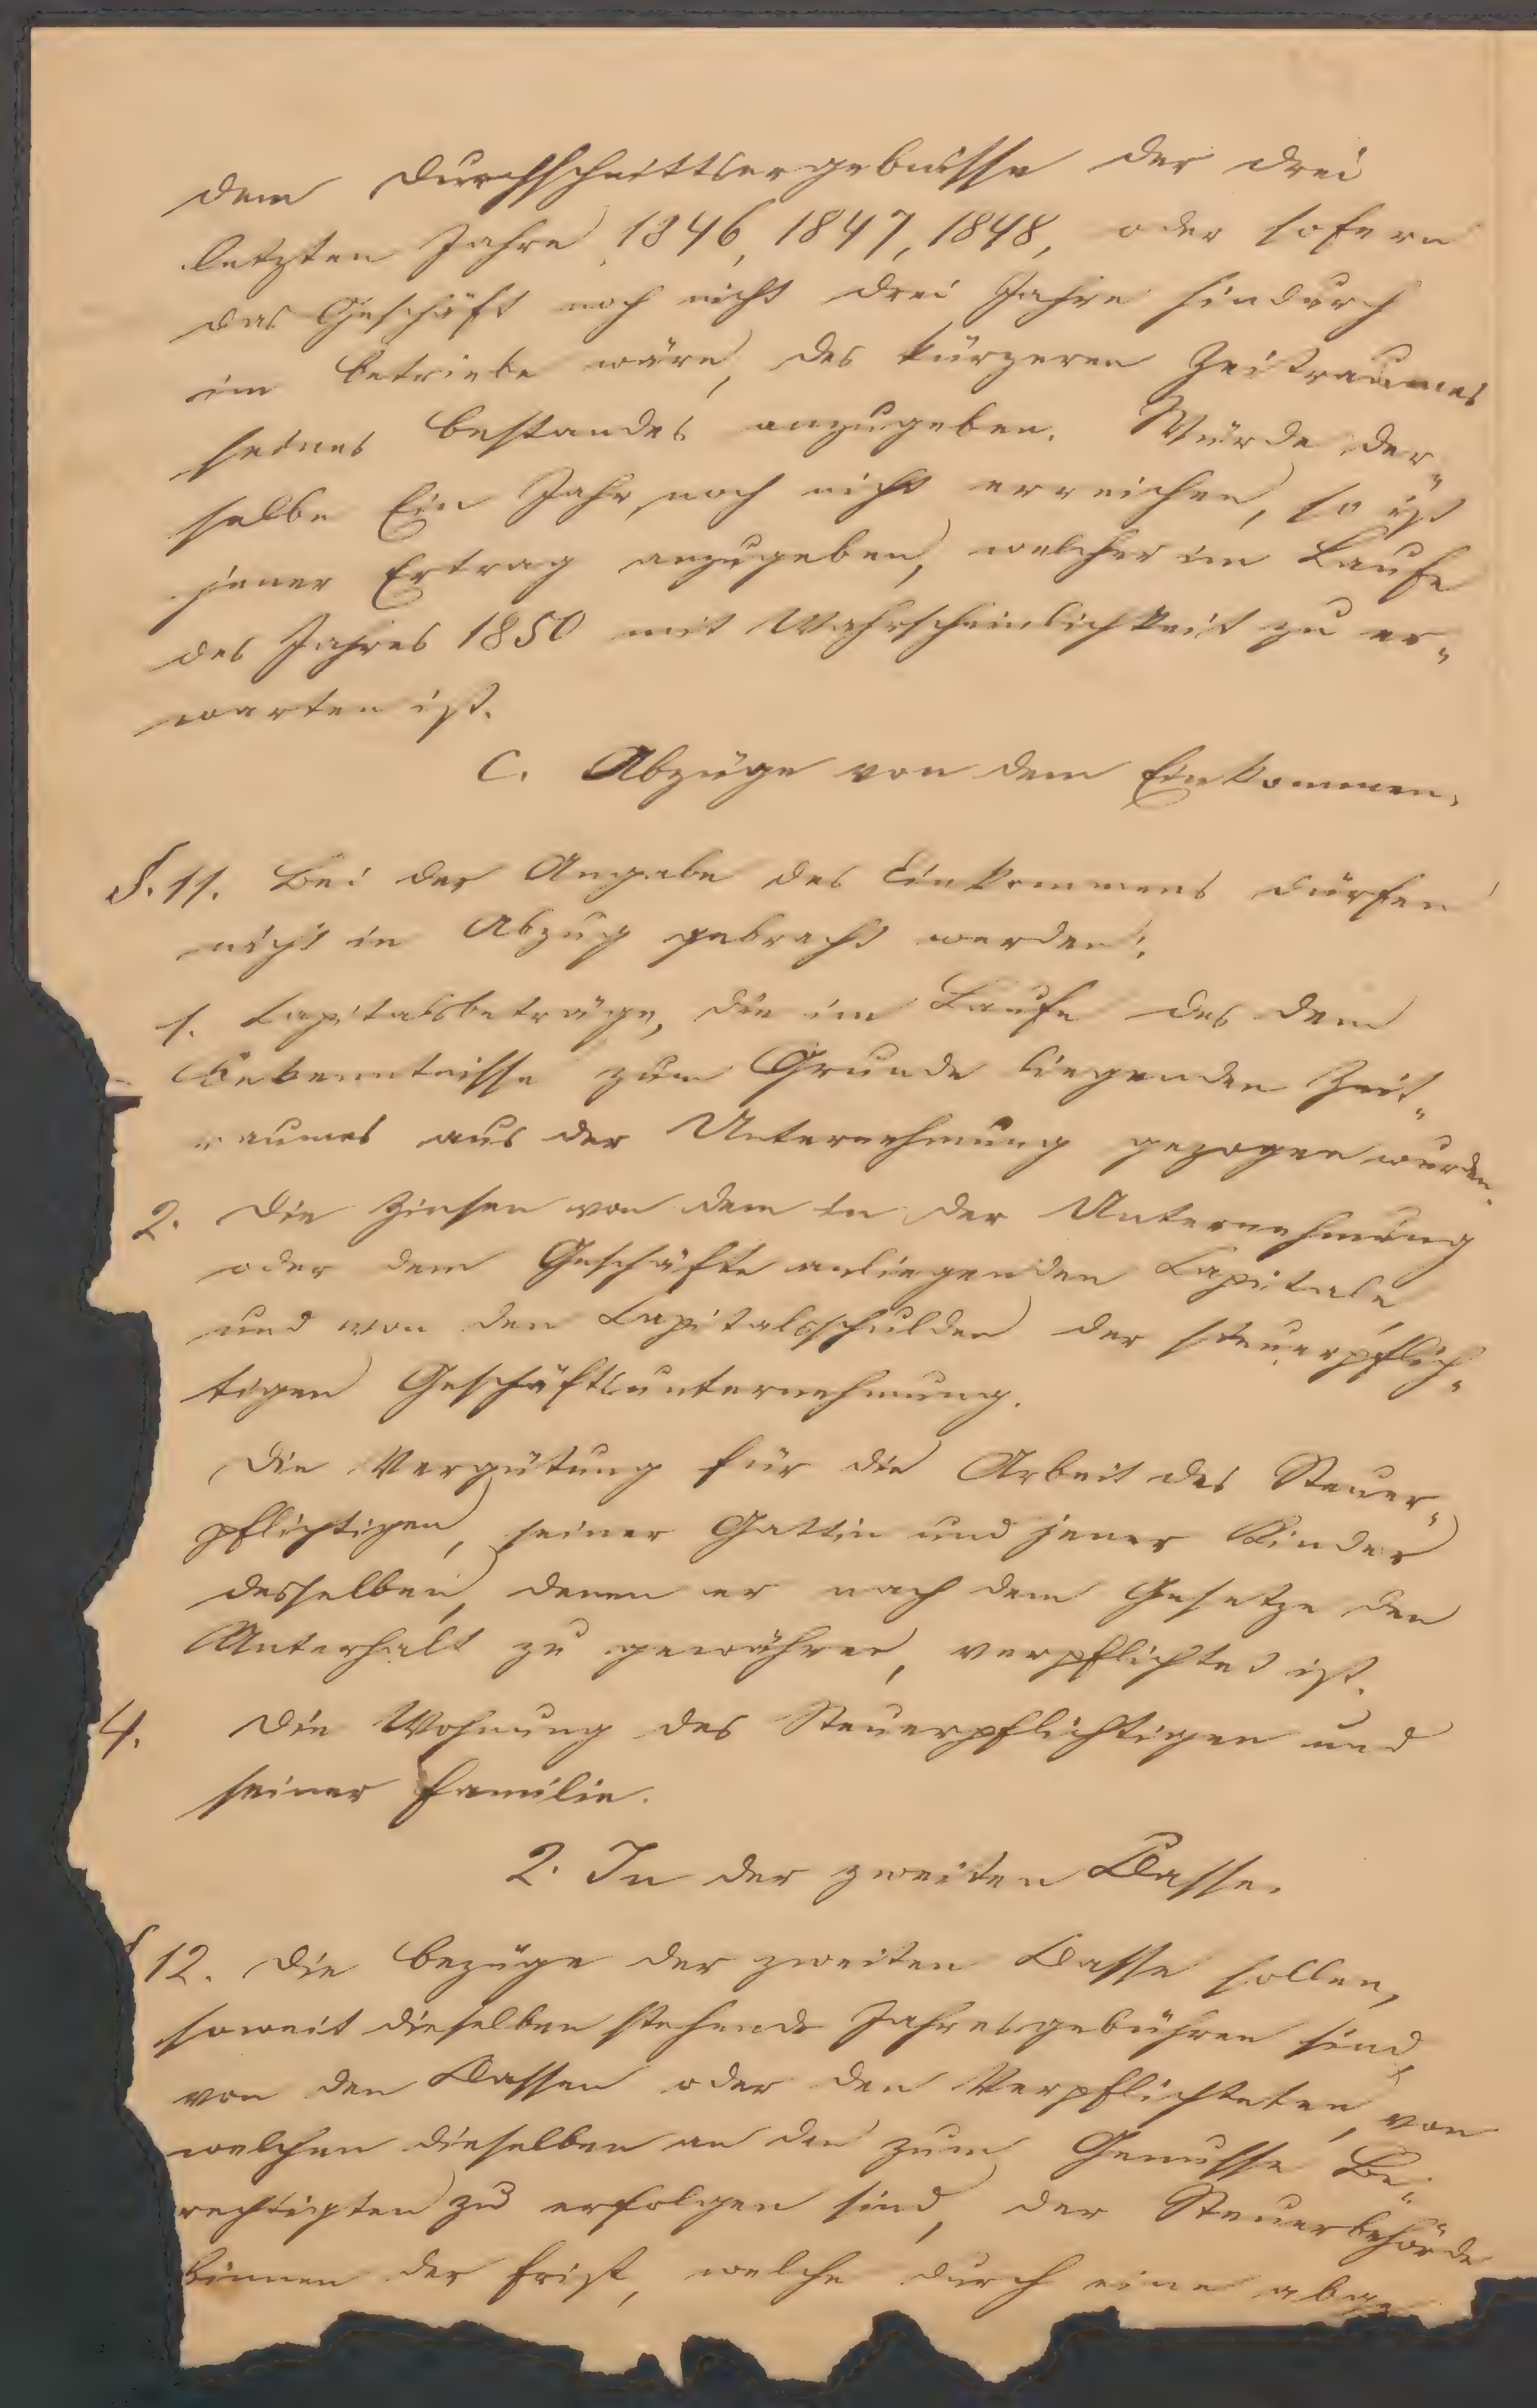 dem Durchschnittsergebnisse der drei
letzten Jahre 1846, 1847, 1848, oder sofern
das Geschäft noch nicht drei Jahre hindurch
im Betriebe wäre, des kürzeren Zeitraumes
seines Bestandes anzugeben. Würde der„
selbe Ein Jahr noch nicht erreichen, so ist
jener Ertrag anzugeben, welcher im Laufe
des Jahres 1850 mit Wahrscheinlichkeit zu er„
warten ist.
C. Abzüge von dem Einkommen.
§. 11. Bei der Angabe des Einkommens dürfen
nicht in Abzug gebracht werden:
1. Capitalsbeträge, die im Laufe des dem
Bekenntnisse zum Grunde liegenden Zeit„
raumes aus der Unternehmung gezogen wurden.
2. Die Zinsen von dem in der Unternehmung
oder dem Geschäfte anliegenden Capitale
und von den Capitalsschulden der steuerpflich„
tigen Geschäftsunternehmung.
Die Vergütung für die Arbeit des Steuer„
pflichtigen, seiner Gattin und jener Kinder
desselben, denen er nach dem Gesetze den
Unterhalt zu gewähren, verpflichtet ist.
4. Die Wohnung des Steuerpflichtigen und
seiner Familie.
2. In der zweiten Classe.
§ 12. Die Bezüge der zweiten Classe sollen,
soweit dieselben stehende Jahresgebühren sind,
von den Cassen oder den Verpflichteten, von
welchen dieselben an den zum Genusse Be„
rechtigten zu erfolgen sind, der Steuerbehörde
binnen der Frist, welche durch eine abge